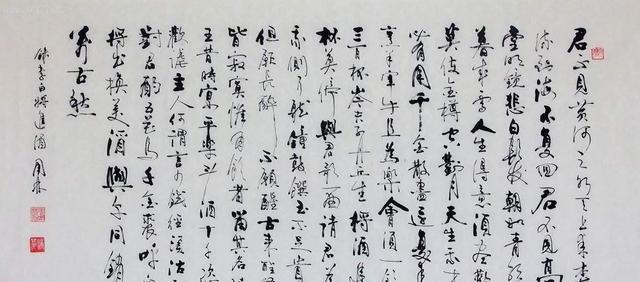 君不見黃河之水天上來奔
流到海不復回君不見高
堂明鏡悲白髮朝如青絲
暮成雪人生得意須盡歡
莫使金樽空對月天生我才
必有用千金散盡還復來
烹羊宰牛且為樂會須一飲
三百杯岑夫子丹丘生將酒進
杯莫停與君歌一曲請君為
我側耳聽鐘鼓饌玉不足貴
但願長醉不願醒古來聖賢
皆寂寞惟有飲者留其名陳
王昔時宴平樂斗酒十千恣
歡謔主人何謂言少錢徑須沽
對君酌五花馬千金裘呼
將出換美酒與爾同銷
萬古愁
李白將進酒